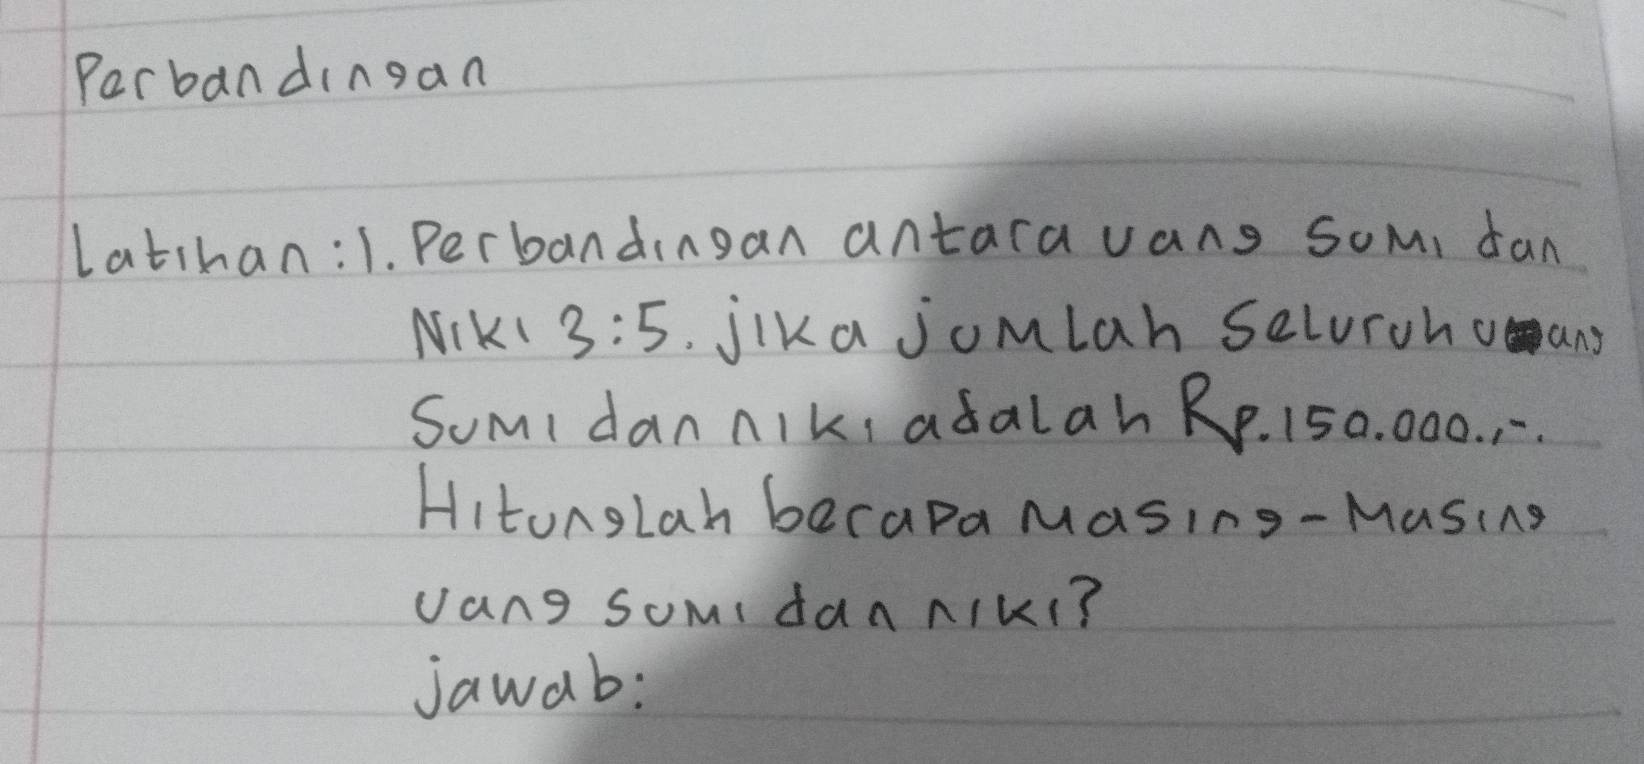 Perbandingan
Latihan:1. Perbandingan antara uang Sumi dan
Niki 3:5. jika jumlah Seluruh uang
Sumi dan niki adalah Rp.150.000.,-.
Hitunglah berapa Masing-Masing
uang sumi dan niki?
jawab: